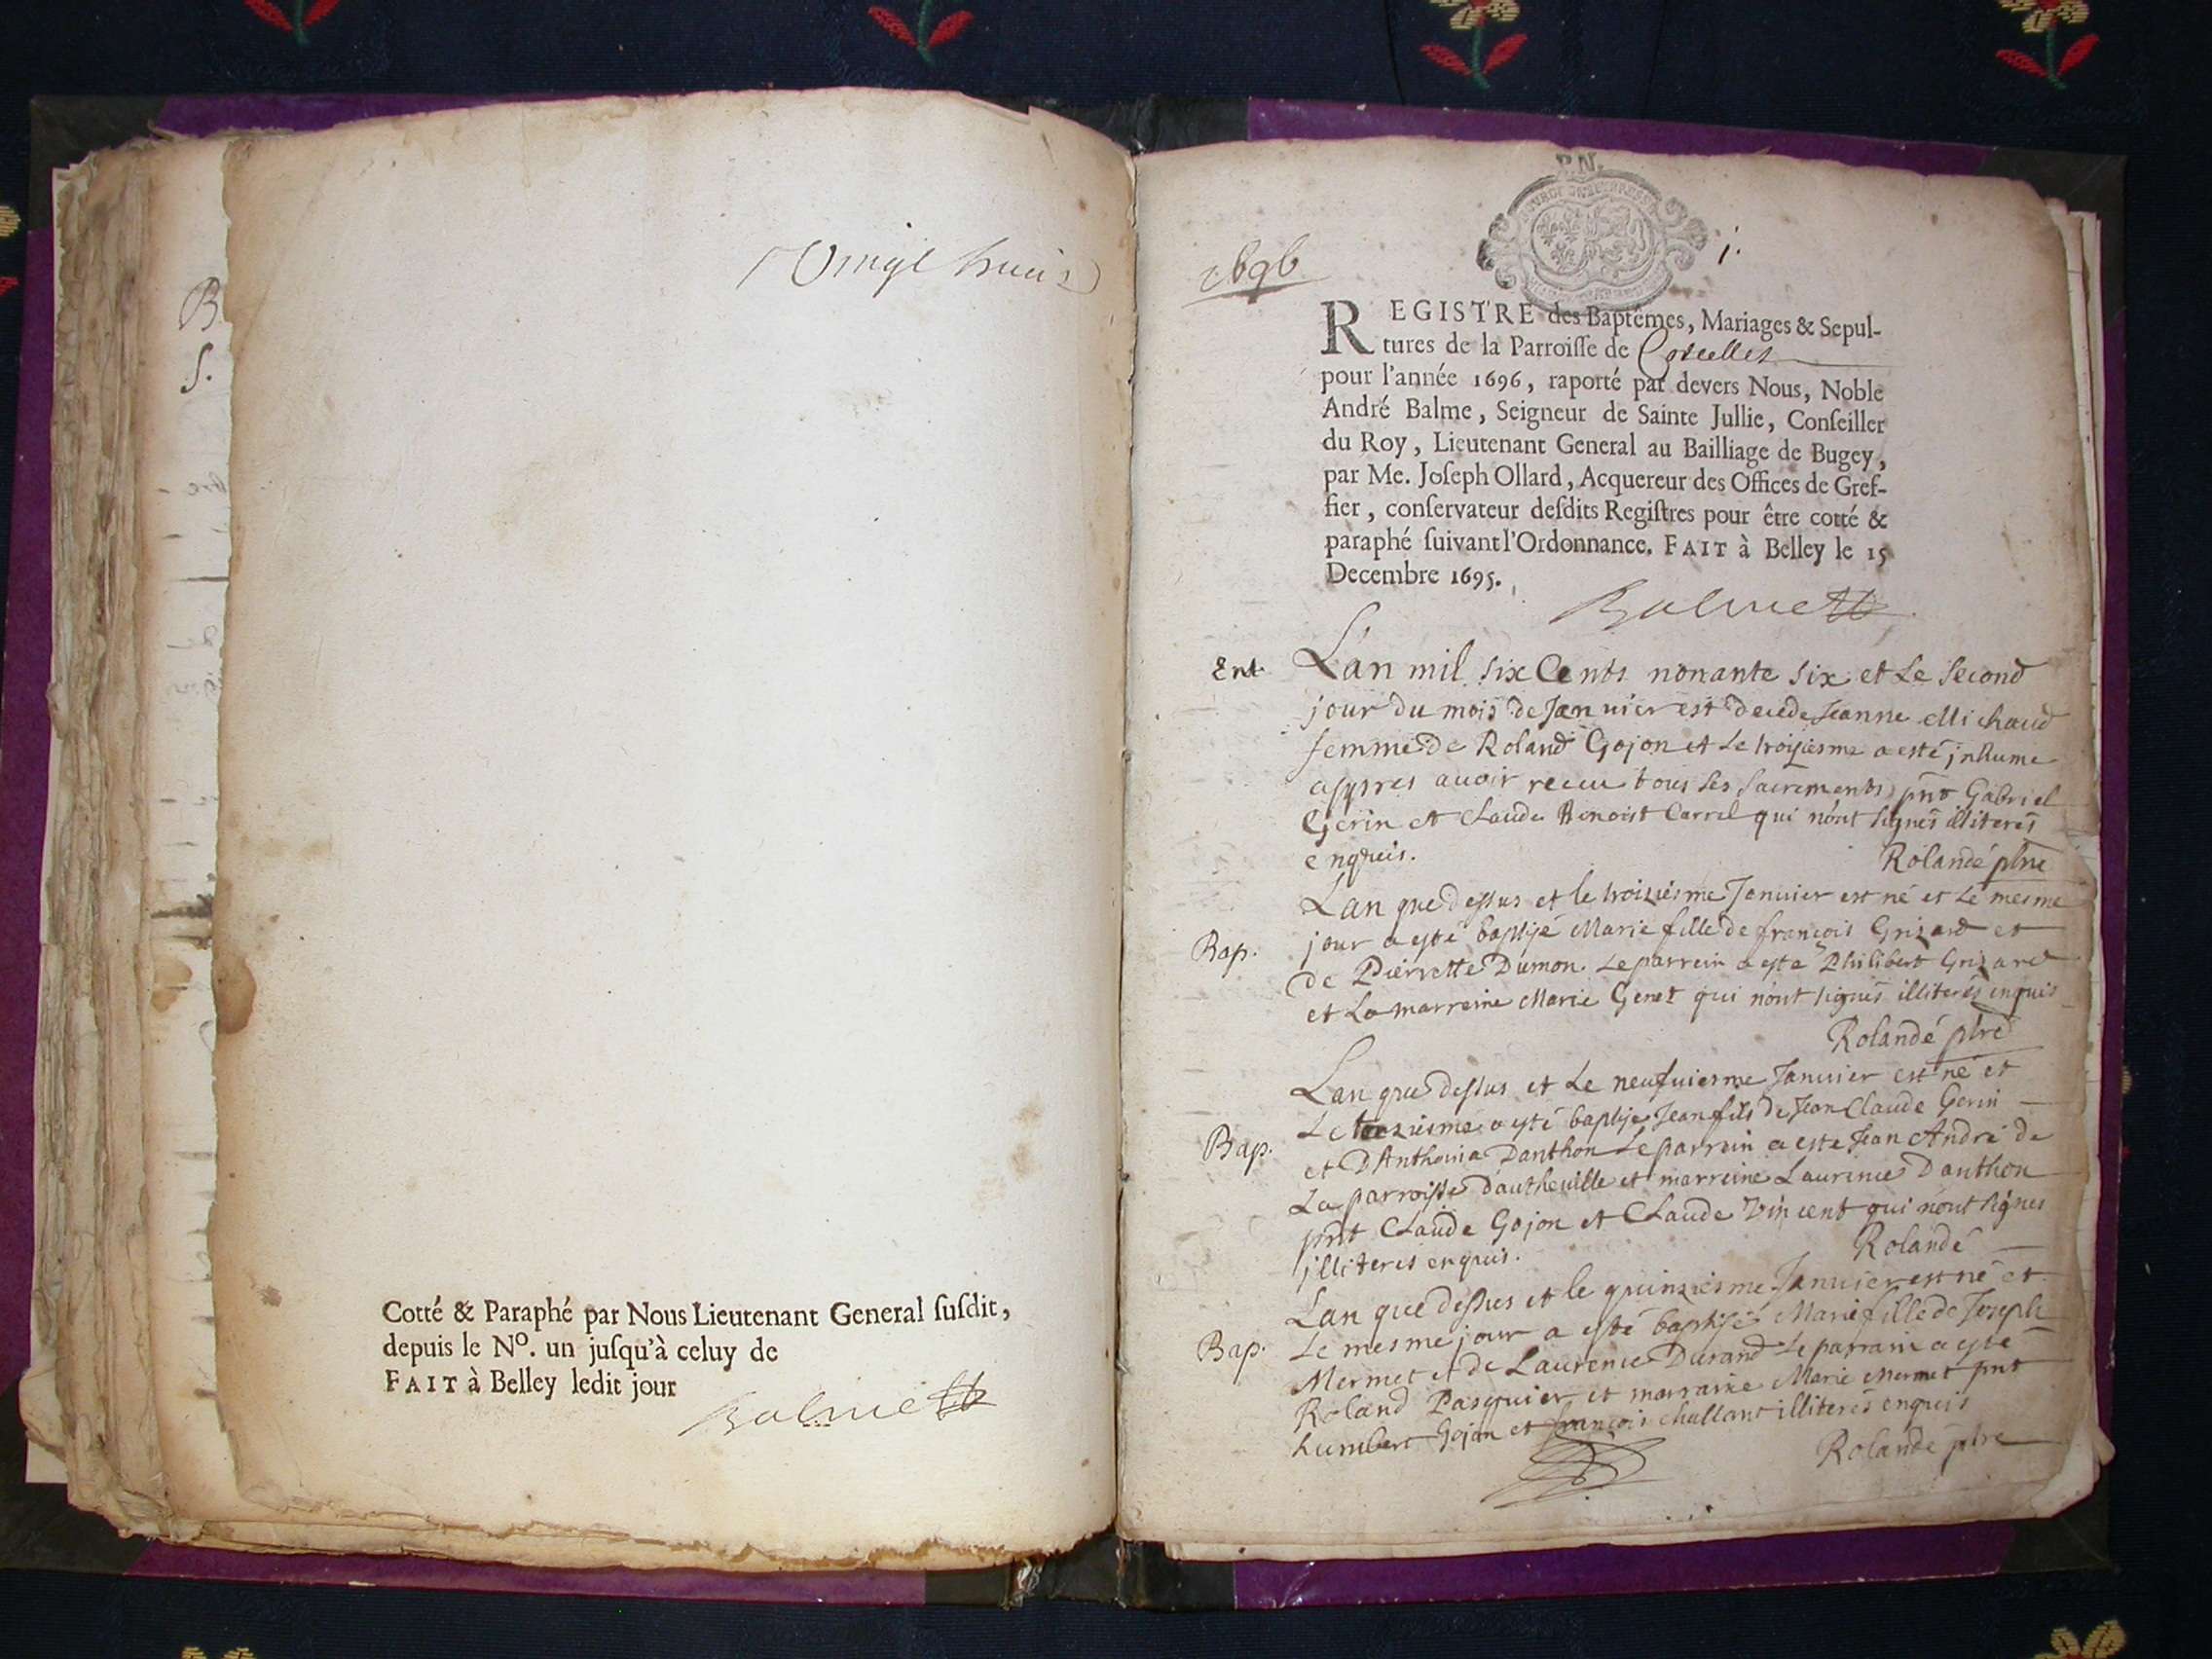 Vingt huict
Cotté & Paraphé par Nous Lieutenant General ſuſdit,
depuis le Nº. un juſqu'à celuy de
FAIT à Belley ledit jour
Balme
B
S.
P.N.
1696
1.
REGISTRE des Baptêmes, Mariages & Sepul-
tures de la Parroiſſe de Corcelles
pour l'année 1696, raporté par devers Nous, Noble
André Balme, Seigneur de Sainte Jullie, Conſeiller
du Roy, Lieutenant General au Bailliage de Bugey,
par Me. Joſeph Ollard, Acquereur des Offices de Gref-
fier, conſervateur deſdits Regiſtres pour être cotté &
paraphé ſuivant l'Ordonnance. FAIT à Belley le 15
Decembre 1695.
Balme
Ent. L'an mil six Cents nonante six et Le Second
jour du mois de Janvier est decede Jeanne Michaud
femme de Roland Gojon et Le troisiesme a esté inhume
appres avoir receu tous ses Sacrements pnt Gabriel
Gerin et Claude Benoist Carrel qui n'ont signes illiteres
enquis.
Rolandé ptre
Lan que dessus et le troiziesme Janvier est né et Le mesme
Bap. jour a esté baptisé Marie fille de françois Grizard et
de Pierrette Dumon. Le parrein a esté Philibert Grizard
et La marreine Marie Genet qui n'ont signés illiterés enquis
Rolandé ptre
Lan que dessus et Le neufviesme Janvier est né et
Le treziesme a esté baptise Jean fils de Jean Claude Gerin
Bap. et D'Anthoina Danthon Le parrein a esté Jean André de
La parroisse d'autheville et marreine Laurence Danthon
pnt Claude Gojon et Claude Vincent qui n'ont signes
illiteres enquis.
Rolandé
Lan que dessus et le quinziesme Janvier est né et
Bap. Le mesme jour a esté baptisé Marie fille de Joseph
Mermet et de Laurence Durand Le parrain a esté
Roland Pasquier et marraine Marie Mermet pnt
humbert Gojon et françois Challant illiterés enquis
Rolandé ptre